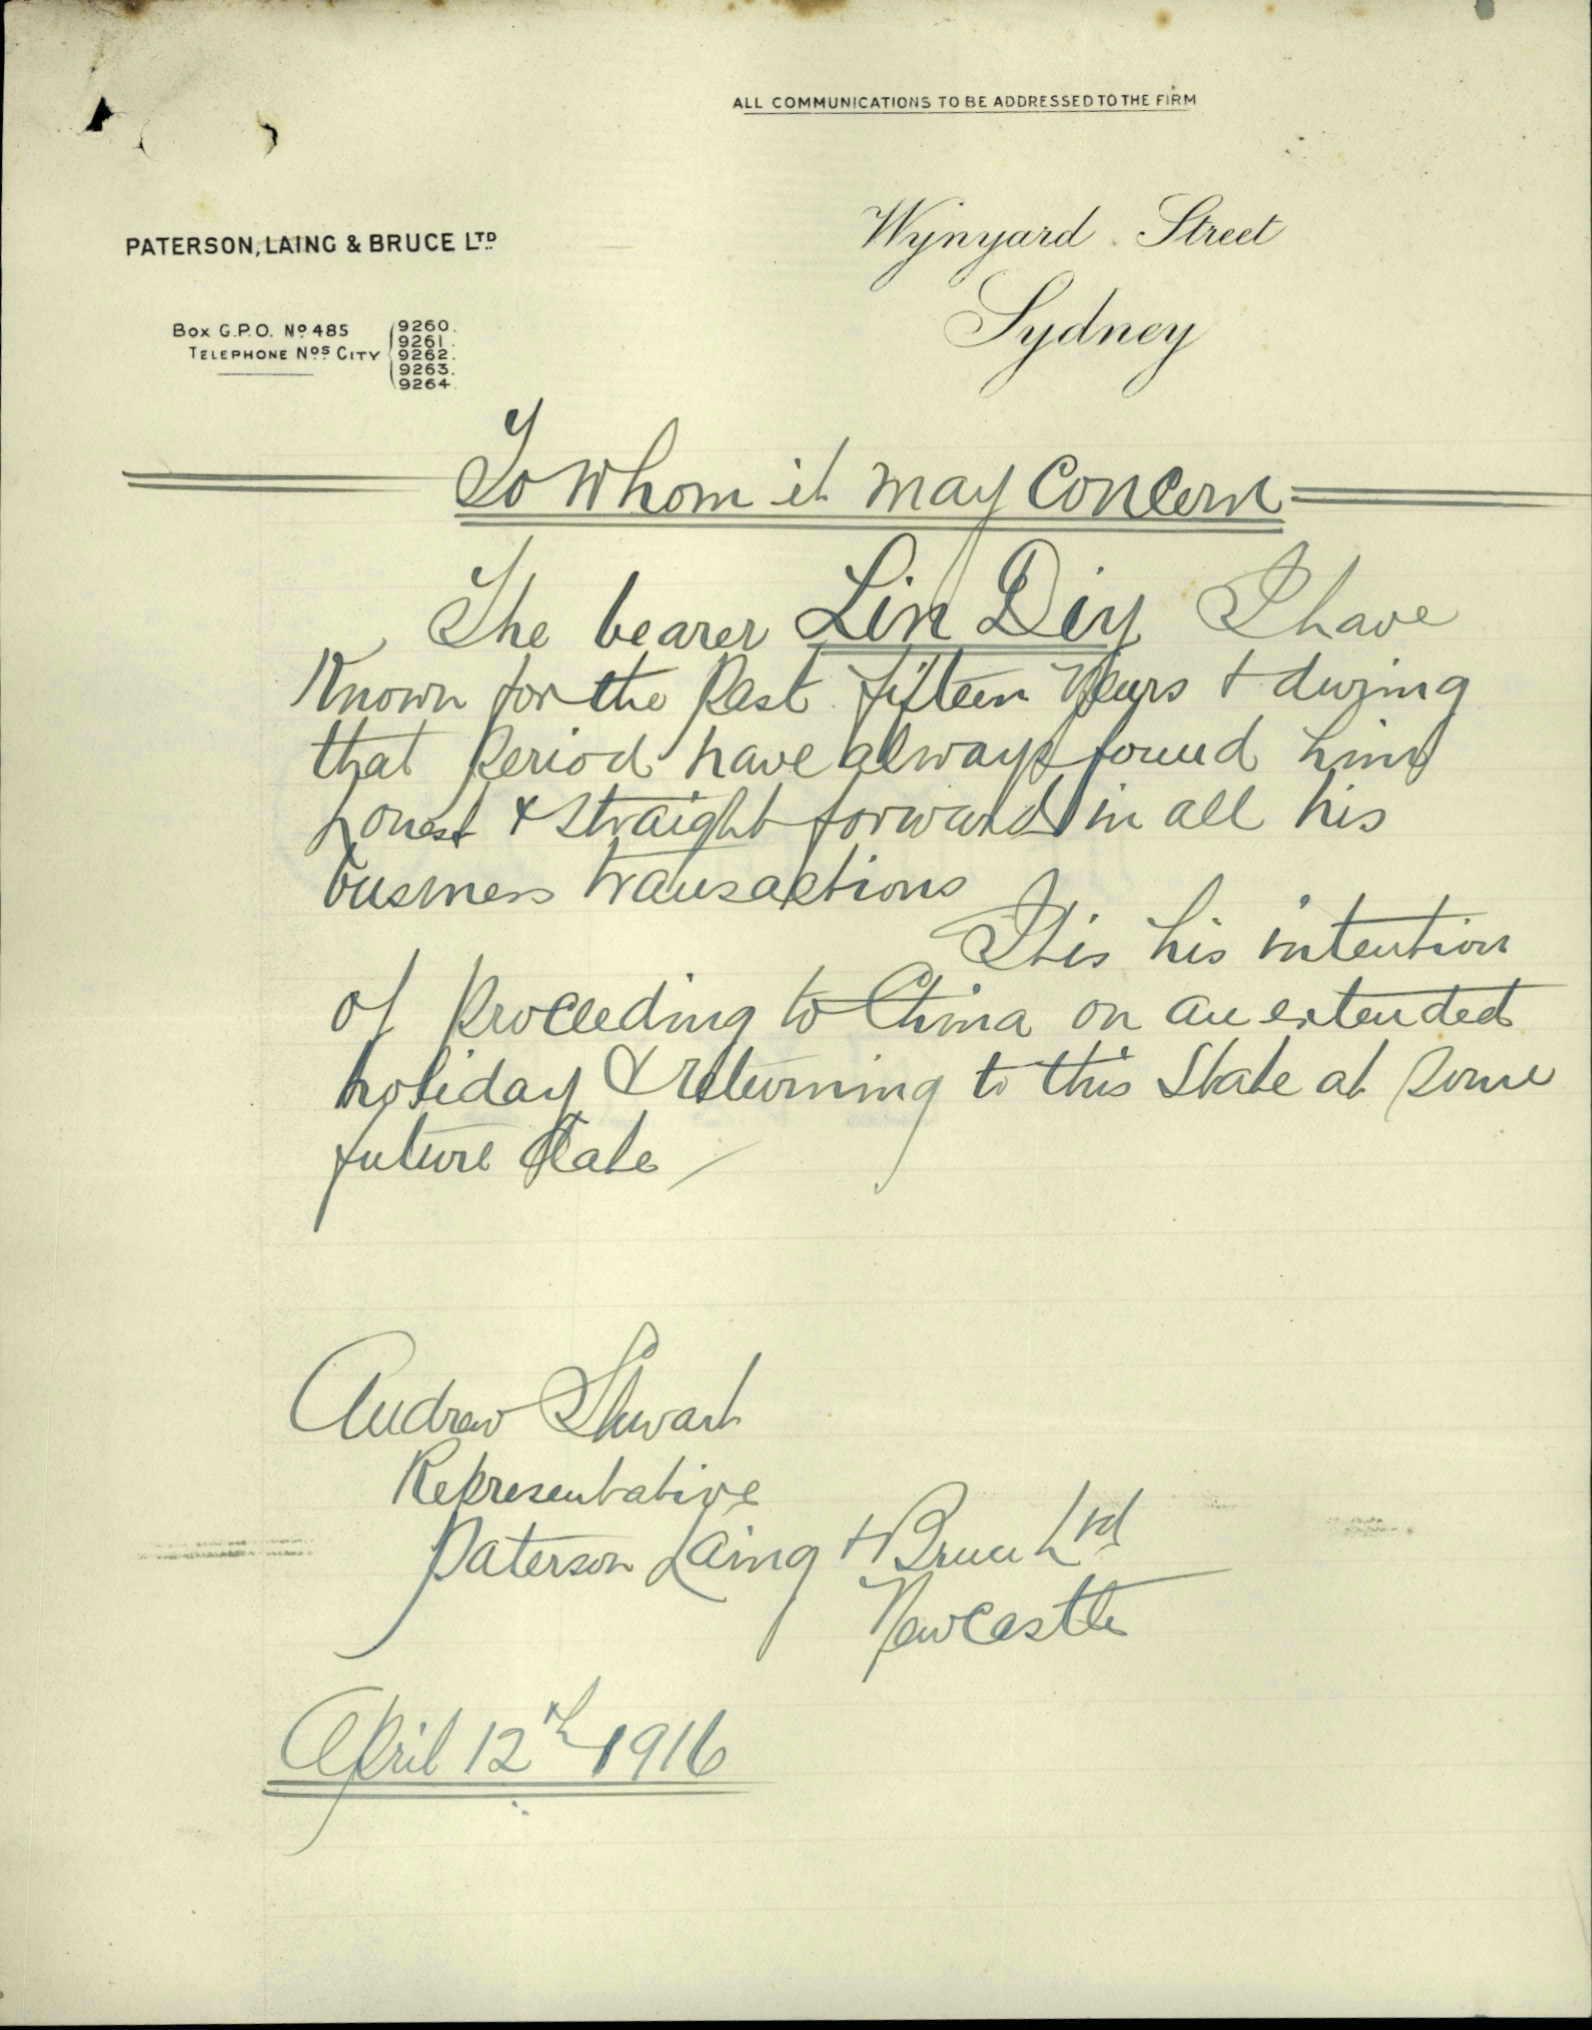 ALL COMMUNICATIONS TO BE ADDRESSED TO THE FIRM
PATERSON, LAING & BRUCE LTD
Wynyard Street
Sydney
Box G.P.O. No 485
TELEPHONE Nos CITY
9260.
9261.
9262.
9263.
9264.
To Whom it may Concern
The bearer Lin Diy I have
Known for the Past fifteen Years & during
that Period have always found him
honest & straight forward in all his
business transactions
It is his intention
of Proceeding to China on an extended
holiday & returning to this State at some
future date
Andrew Stewart
Representative
Paterson Laing & Bruce Ltd
Newcastle
April 12th 1916